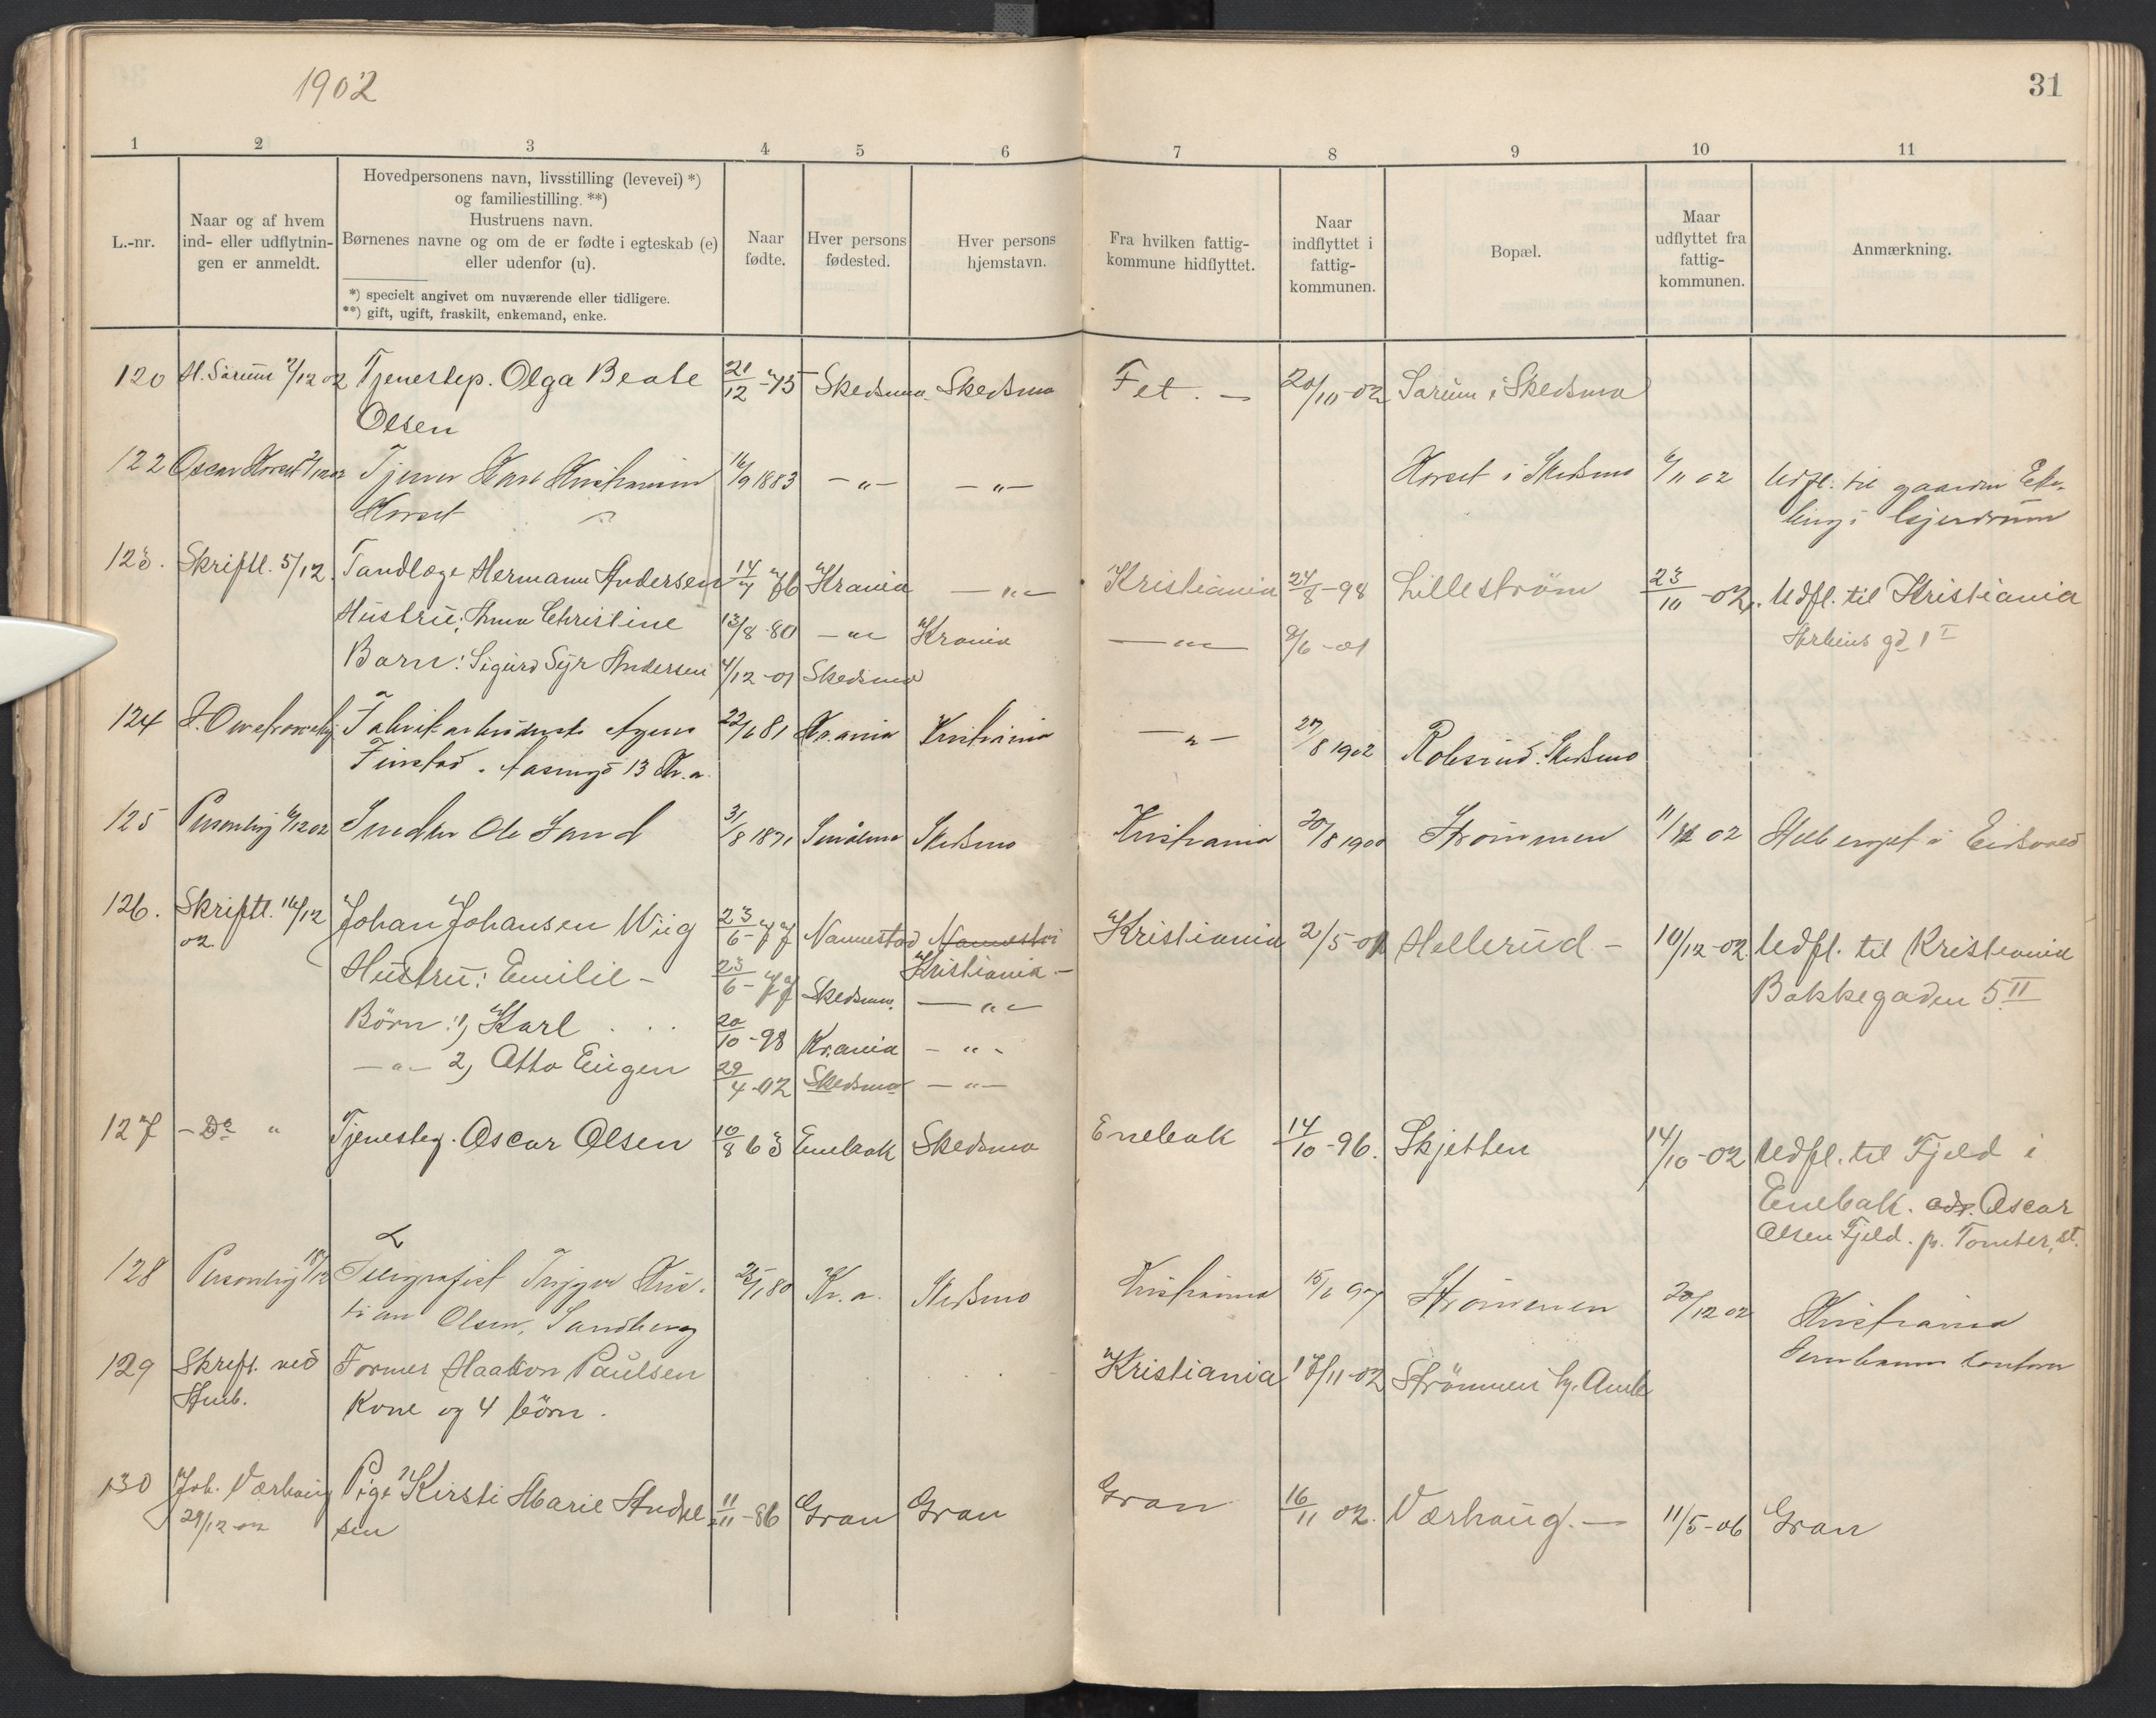 1902
31
1 2 3 4 5 6 7 8 9 10 11
L.-nr.
Naar og af hvem
ind- eller udflytnin-
gen er anmeldt.
Hovedpersonens navn, livsstilling (levevei) *)
og familiestilling. **)
Hustruens navn.
Børnenes navne og om de er fødte i egteskab (e)
eller udenfor (u).
*) specielt angivet om nuværende eller tidligere.
**) gift, ugift, fraskilt, enkemand, enke.
Naar
fødte.
Hver persons
fødested.
Hver persons
hjemstavn.
Fra hvilken fattig-
kommune hidflyttet.
Naar
indflyttet i
fattig-
kommunen.
Bopæl.
Maar
udflyttet fra
fattig-
kommunen.
Anmærkning.
120 Tjenestep. Olga Beate 21/12 - 75 Skedsmo Skedsmo Fet. — 20/10-02 Sørum i Skedsmo
Olsen
122 Oscar Horset Tjener Hans Kristiansen 16/9 1883 — " — — " — Horset i Skedsmo 6/11 02 Udfl. til gaarden
Horset i Gjerdrum
123. Skriftl. 5/12. Tandlæge Hermann Andersen 14/7 76 Krania — " — Kristiania 24/8-98 Lilleström 23/10 -02. Udfl. til Kristiania
Hustru: Anna Christine 13/8-80 — " — Krania — " — 9/6-01 gd. 1 I
Barn: Sigurd Andersen 4/12-01 Skedsmo
124 Fabrikarbeiderske Agnes 22/6 81 Kr.ania Kristiania — " — 27/8 1902 Skedsmo
Finstad. 13 Kr.a.
125 Personlig 6/12 02 Ole Sand 31/8 1871 Skedsmo Kristiania 20/8 1900 Strömmen 11/12 02 i Eidsvold
126. Skriftl. 16/12 Johan Johansen Wiig 23/6-77 Nannestad Nannestad Kristiania 2/5-01 Hellerud — 10/12-02. Udfl. til Kristiania
02. Hustru: Emilie — 23/6-77 Skedsmo Kristiania — Bakkegaden 5 II
— " —
Børn: 1, Karl 20/10-98 Kr.ania — " —
— " — 2, Otto Eugen 29/4-02 Skedsmo — " —
127 — Do " Tjenesteg. Oscar Olsen 10/8 63 Enebak Skedsmo Enebak 14/10-96. Skjetten 14/10-02 Udfl. til Fjeld i
Enebak. adr. Oscar
Olsen Fjeld. p. Tomter st.
128 Personlig 18/12 Telegrafist Trygve Kris- 25/1 80 Kr.a. Skedsmo Kristiania 15/6 97 Strömmen 20/12 02 Kristiania
tian Olsen, Sandberg
129 Skrift. ved Former Haakon Paulsen Kristiania 17/11-02 Strömmen
Kone og 4 børn.
130 Joh. Værhaug Pige Kirsti Marie Andre 11/11-86 Gran Gran Gran 16/11 02. Værhaug. — 11/5-06 Gran
29/12-02 sen